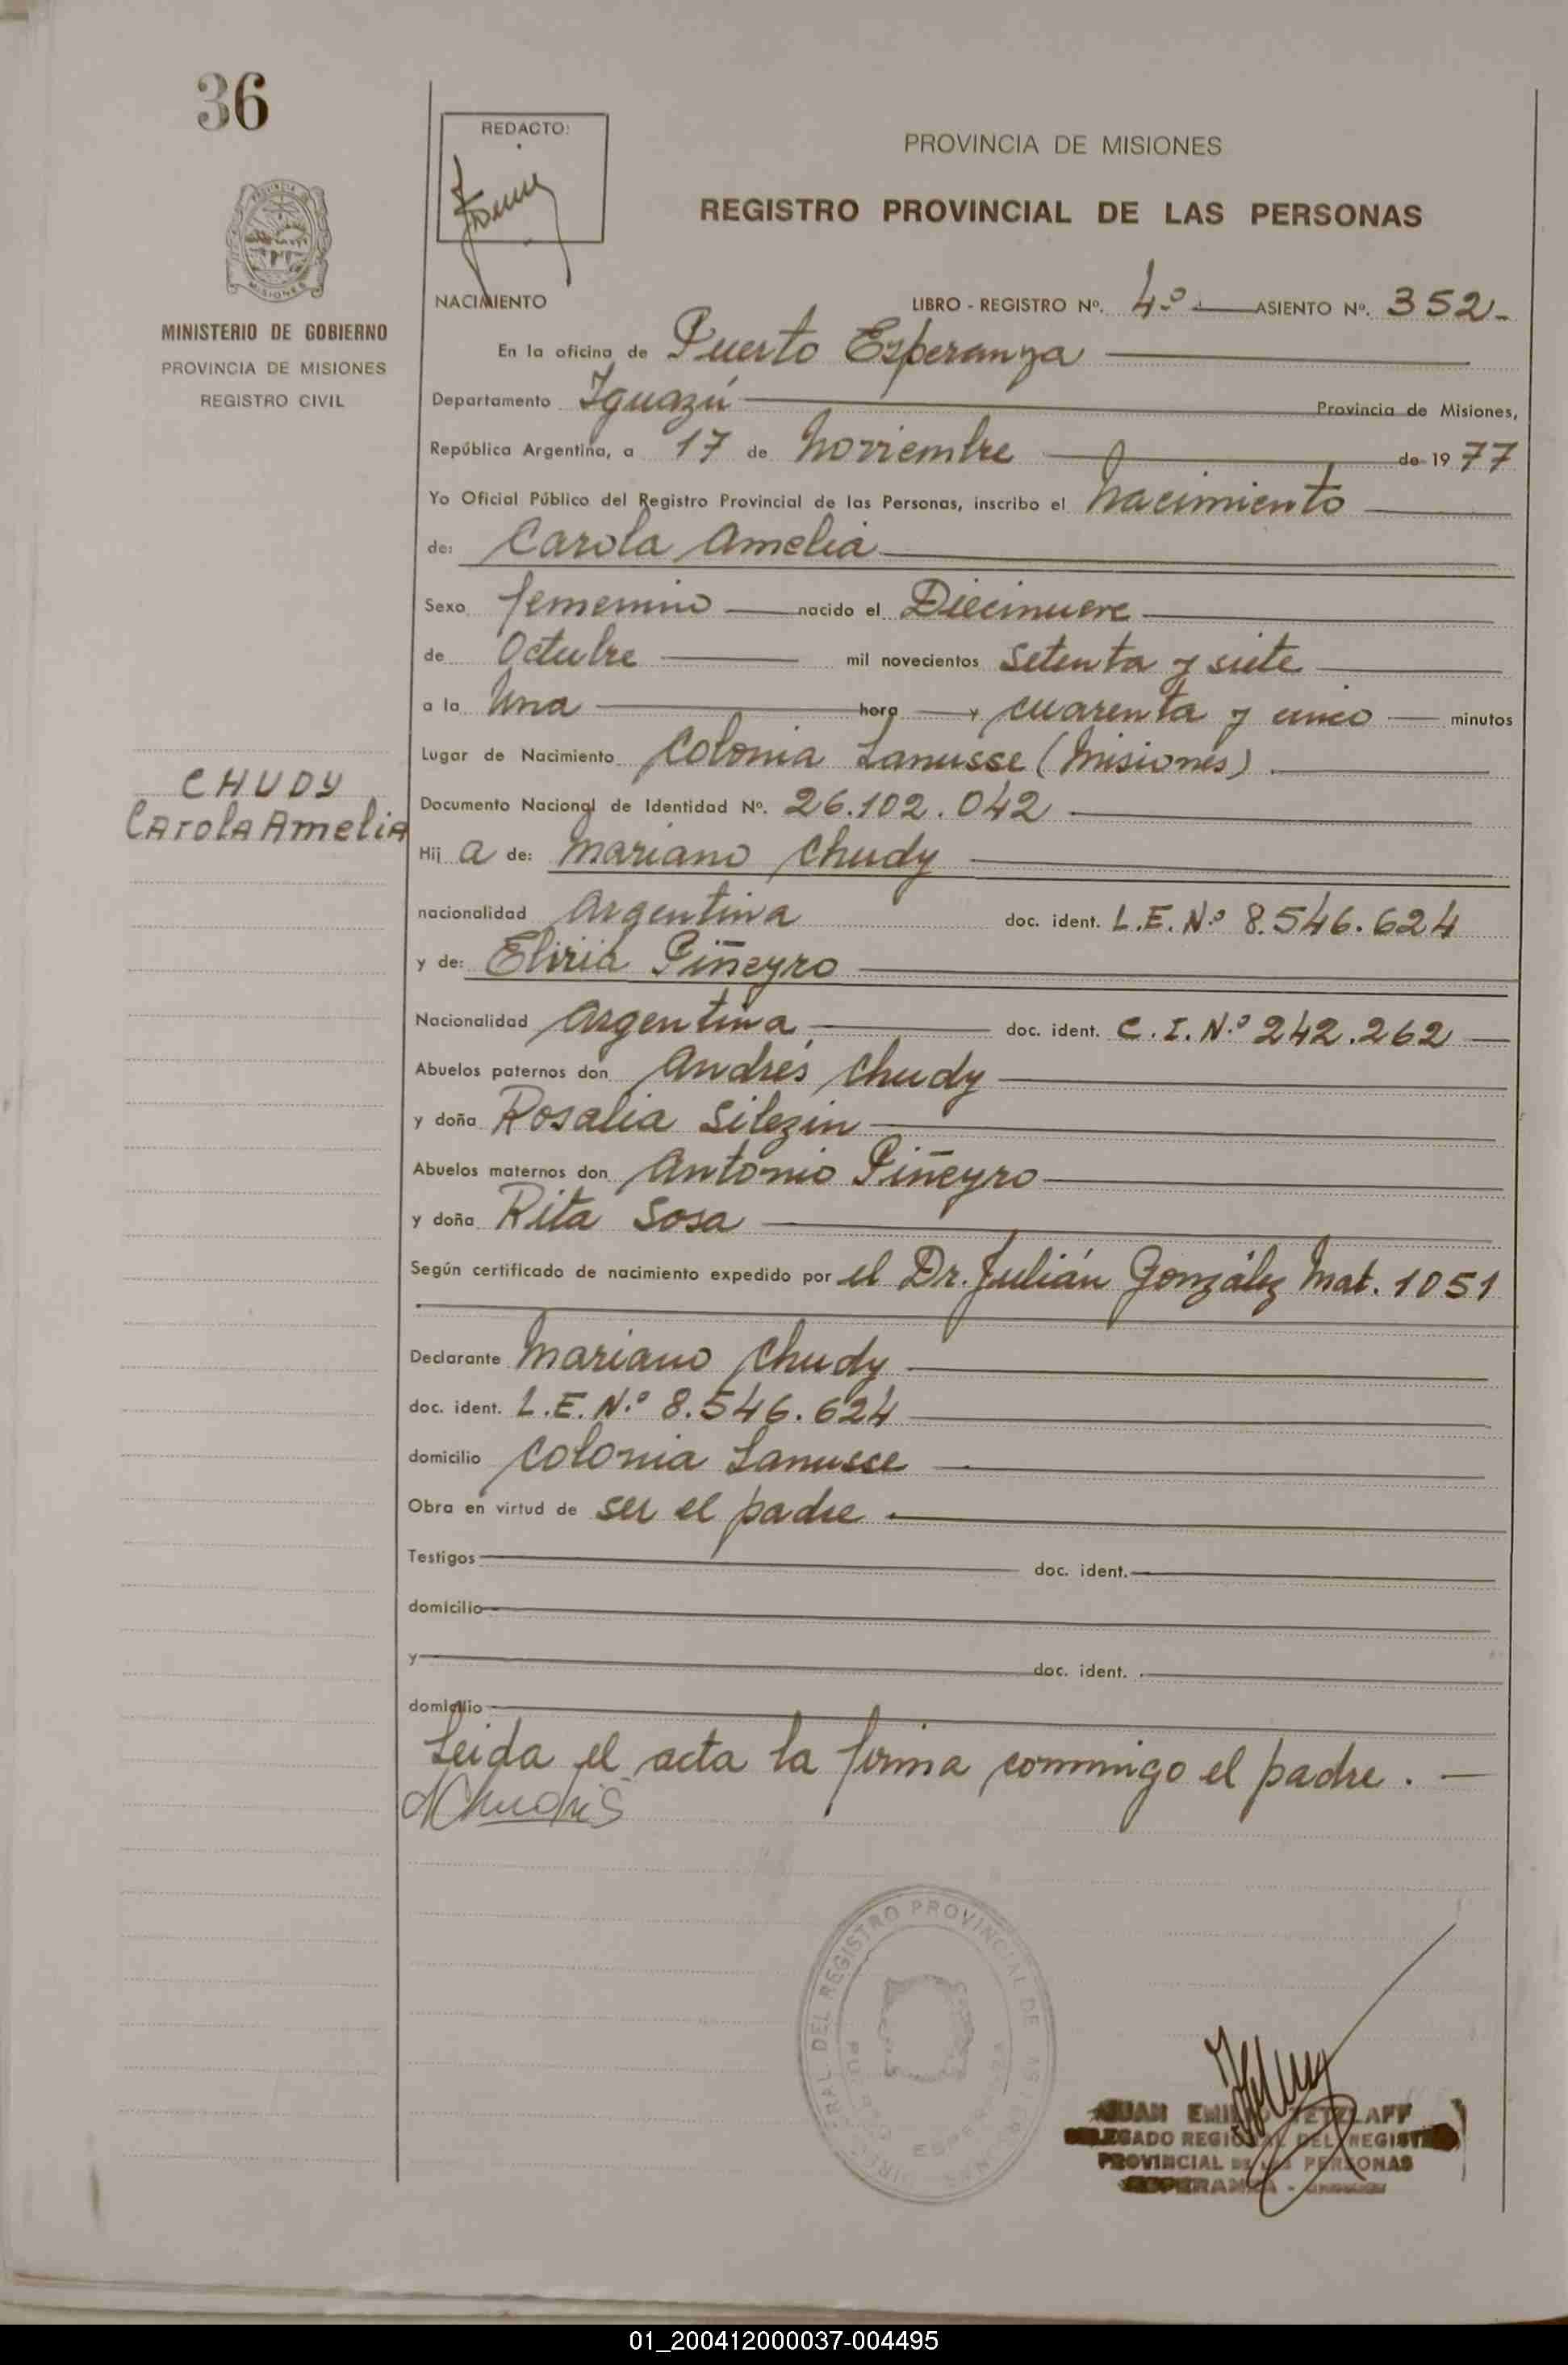 36
REDACTO:
PROVINCIA DE MISIONES
REGISTRO PROVINCIAL DE LAS PERSONAS
MISIONES
MINISTERIO DE GOBIERNO
PROVINCIA DE MISIONES
REGISTRO CIVIL
NACIMIENTO LIBRO - REGISTRO Nº. 4º ASIENTO Nº. 352.-
En la oficina de Puerto Esperanza
Departamento Iguazú Provincia de Misiones,
República Argentina, a 17 de Noviembre de 1977
Yo Oficial Público del Registro Provincial de las Personas, inscribo el Nacimiento
de: Carola Amelia
Sexo femenino nacido el Diecinueve
de Octubre mil novecientos setenta y siete
a la Una hora y cuarenta y cinco minutos
Lugar de Nacimiento Colonia Lanusse (Misiones)
CHUDY
Carola Amelia
Documento Nacional de Identidad Nº. 26.102.042
Hij a de: Mariano Chudy
nacionalidad Argentina doc. ident. L.E.N.º 8.546.624
y de: Eliria Piñeyro
Nacionalidad Argentina doc. ident. C.I.N.º 242.262
Abuelos paternos don Andrés Chudy
y doña Rosalia Silezin
Abuelos maternos don Antonio Piñeyro
y doña Rita Sosa
Según certificado de nacimiento expedido por el Dr. Julián González Mat. 1051
Declarante Mariano Chudy
doc. ident. L.E.N.º 8.546.624
domicilio Colonia Lanusse
Obra en virtud de ser el padre.
Testigos doc. ident.
domicilio
y doc. ident.
domicilio
Leida el acta la firma conmigo el padre. —
DEL REGISTRO PROVINCIAL DE
JUAN EMILIO TETZLAFF
DELEGADO REGIONAL DEL REGISTRO
PROVINCIAL DE LAS PERSONAS
ESPERANZA -
01_200412000037-004495